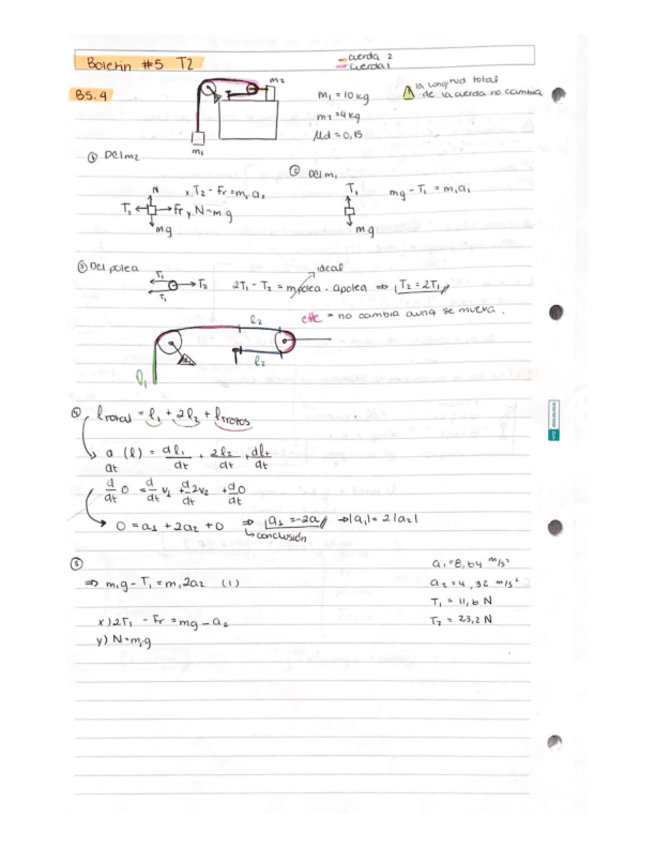 Boletín #5 T2
cuerda 2
cuerda 1
B5.4
m2
m1
m1 = 10 kg
m2 = 4 kg
Md = 0,15
la longitud total
de la cuerda no cambia
① Del m2
N
T2
Fr
mg
x. T2 - Fr = m2 a2
y. N = m·g
② Del m1
T1
mg
mg - T1 = m1a1
③ Del polea
T1
T1
T2
ideal
2T1 - T2 = mpolea · apolea ⇒ T2 = 2T1
cte = no cambia aunq se mueva.
l2
l2
l1
④ lTOTAL = l1 + 2l2 + lTROZOS
(l) = dl1/dt + 2l2/dt + dlt/dt
d/dt 0 = d/dt v1 + d/dt 2v2 + d/dt 0
0 = a1 + 2a2 + 0 ⇒ a1 = -2a ⇒ |a1| = 2|a2|
↳ conclusión
⑤
⇒ m1g - T1 = m1 2a2 (1)
x) 2T1 - Fr = mg - a2
y) N = m2g
a1 = 8,64 m/s²
a2 = 4,32 m/s²
T1 = 11,6 N
T2 = 23,2 N